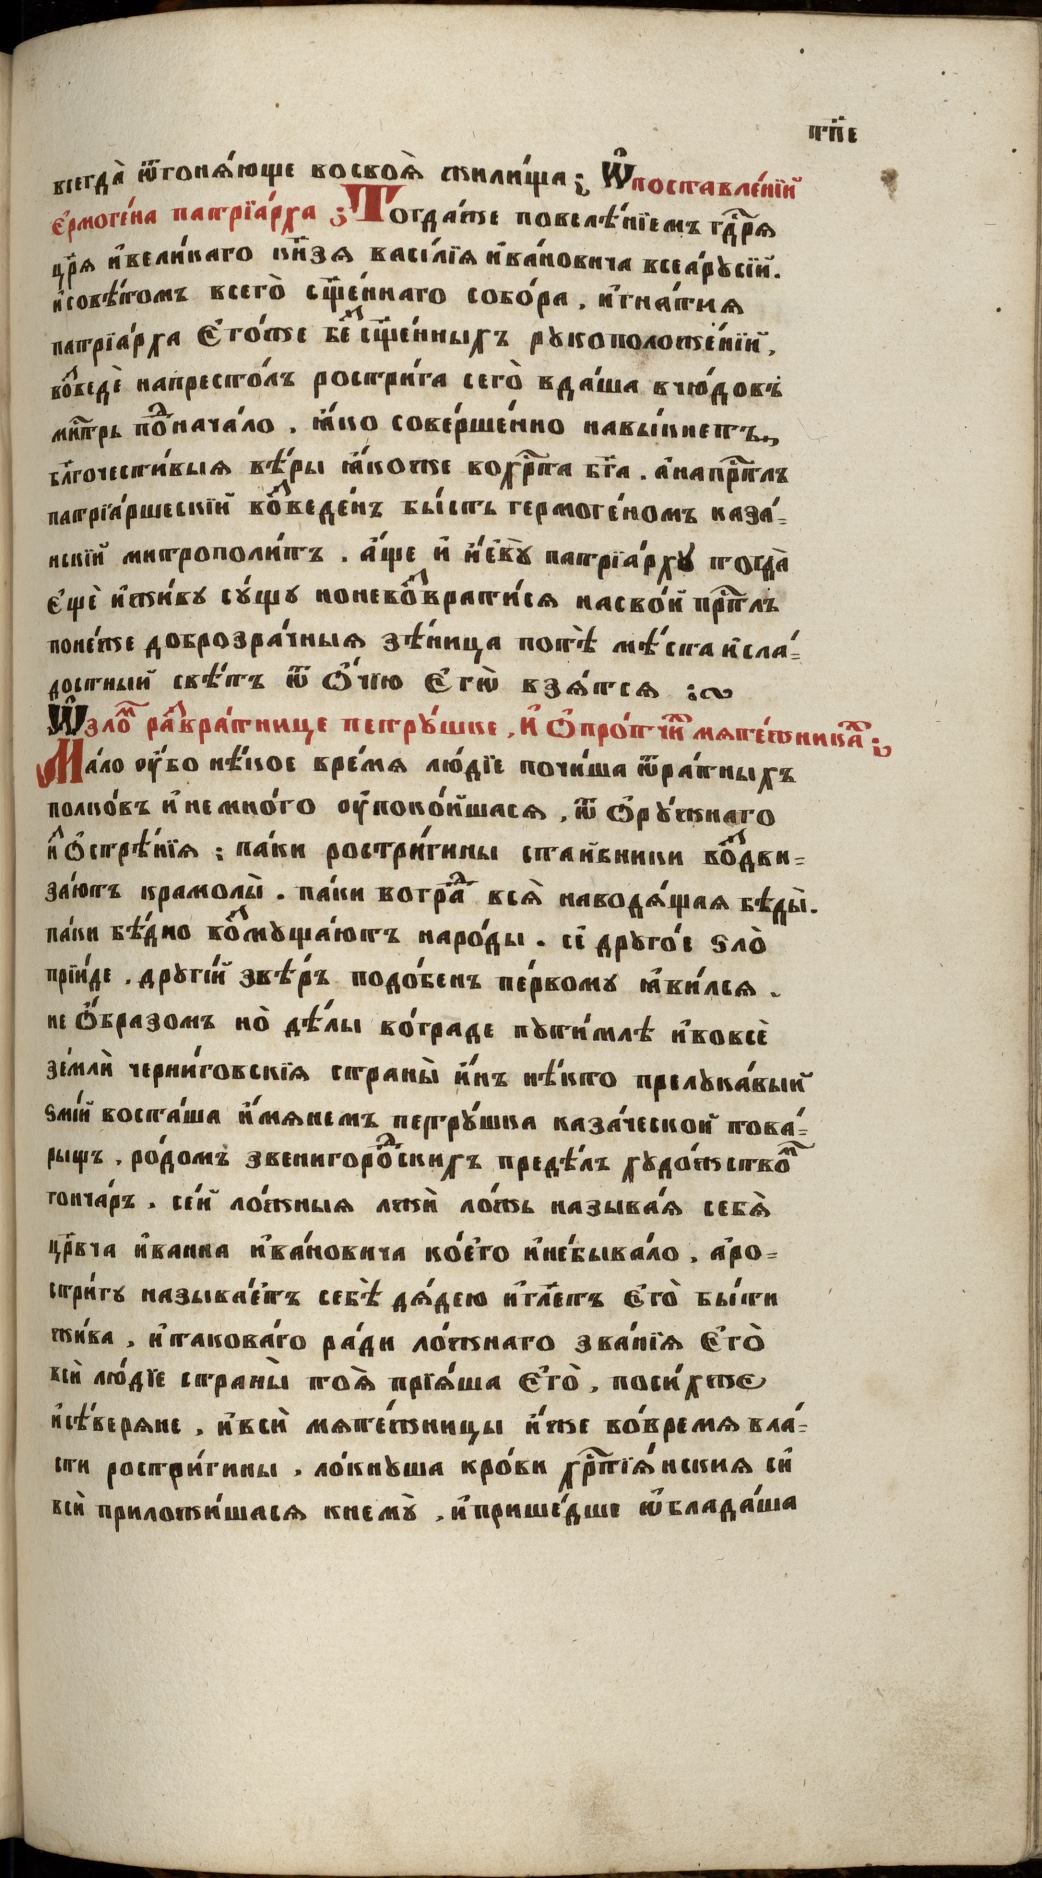 т҃пе
всегда̀ ѿгоня́юще восвоя̀ жили́ща ; Ѡ҆поставле́нїй
є҆рмоге́на патрїа́рха ; Тогда́же повелѣ́нїемъ гдⷭ҇ря
цр҃я и҆вели́каго кн҃зя васи́лїя и҆ва́новича всеа̀русїй.
и҆совѣ́томъ всего̀ сщ҃е́ннаго собо́ра , и҆гна́тия
патрїа́рха Є҆го́же беꙁ̾ сщ҃е́нныхъ рукоположе́нїй ,
воꙁведѐ напресто́лъ ростри́га сего̀ вда́ша вчю́довъ
мнⷭ҇трь поⷣнача́ло , ꙗ҆́ко соверше́нно навы́кнетъ„
бл҃гочести́выя вѣ́ры ꙗ҆́коже вохрⷭ҇та бг҃а . а҆напрⷭ҇тлъ
патрїа́ршескїй воꙁведе́нъ бы́сть гермоге́номъ каза́-
нскїй митрополи́тъ . а҆́ще и҆ и҆́е҆в̾у патрїа́рху тогда̀
є҆щѐ и҆жи́ву су́щу ноневоꙁврати́ся насво́й прⷭ҇тлъ
поне́же доброзра́чныя зѣ́ница потѣ̀ мѣ́ста и҆сла́-
достный свѣ́тъ ѿ Ѻ҆́чїю Є҆гѡ̀ взя́тся :~
Ѡ҆зло́ⷨ раꙁвра́тнице петру́шке , и҆ Ѻ҆про́тчиⷯ мяте́жникаⷯ ;
Ма́ло оу҆́бо нѣ́кое вре́мя лю́дїе почи́ша ѿра́тныхъ
полко́въ и҆немно́го оу҆поко́йшася , ѿ Ѻ҆ру́жнаго
иꙁ̾Ѻ҆стрѣ́нїя ; па́ки ростри́гины ста́и҆бники воꙁ̾дви-
за́ютъ крамолы̀ . па́ки вогра́ⷣ вся̀ наводя́щая бѣ́ды̀.
па́ки бѣ́дно воꙁмуща́ютъ наро́ды . се́ друго́е ѕло̀
прїи́де , другі́й звѣ́ръ подо́бенъ пе́рвому ꙗ҆ви́лся .
не Ѻ҆́бразомъ но̀ дѣ́лы во́граде пути́млѣ и҆вовсѐ
зе́млѝ черни́говскїя страны̀ и҆́нъ нѣ́кто прелука́вый
ѕмі́й воста́ша и҆́мянемъ петру́шка каза́ческой това́-
рыщъ , ро́домъ звенигоро́ⷣскихъ предѣ́лъ худо́жствоⷨ
гонча́ръ . се́й ло́жныя лжѝ ло́жь называ́я себя̀
црⷭ҇вча и҆ванна и҆ва́новича ко́е҆го и҆небыва́ло , а҆ро-
стри́гу называ́е҆тъ себѣ̀ дя́дею и҆гл҃етъ Є҆го̀ бы́ти
жи́ва , и҆такова́го ра́ди ло́жнаго зва́нїя Є҆го̀
всѝ лю́дїе страны̀ тоя̀ прїя́ша Є҆го̀ , поси́хже
и҆сѣ́веряне , и҆всѝ мяте́жницы и҆́же во́время вла́-
сти ростри́гины , ло́кнуша кро́ви хрⷭ҇тїя́нския си́
всѝ приложи́шася кнему̀ , и҆прише́дше ѡ҆блада́ша